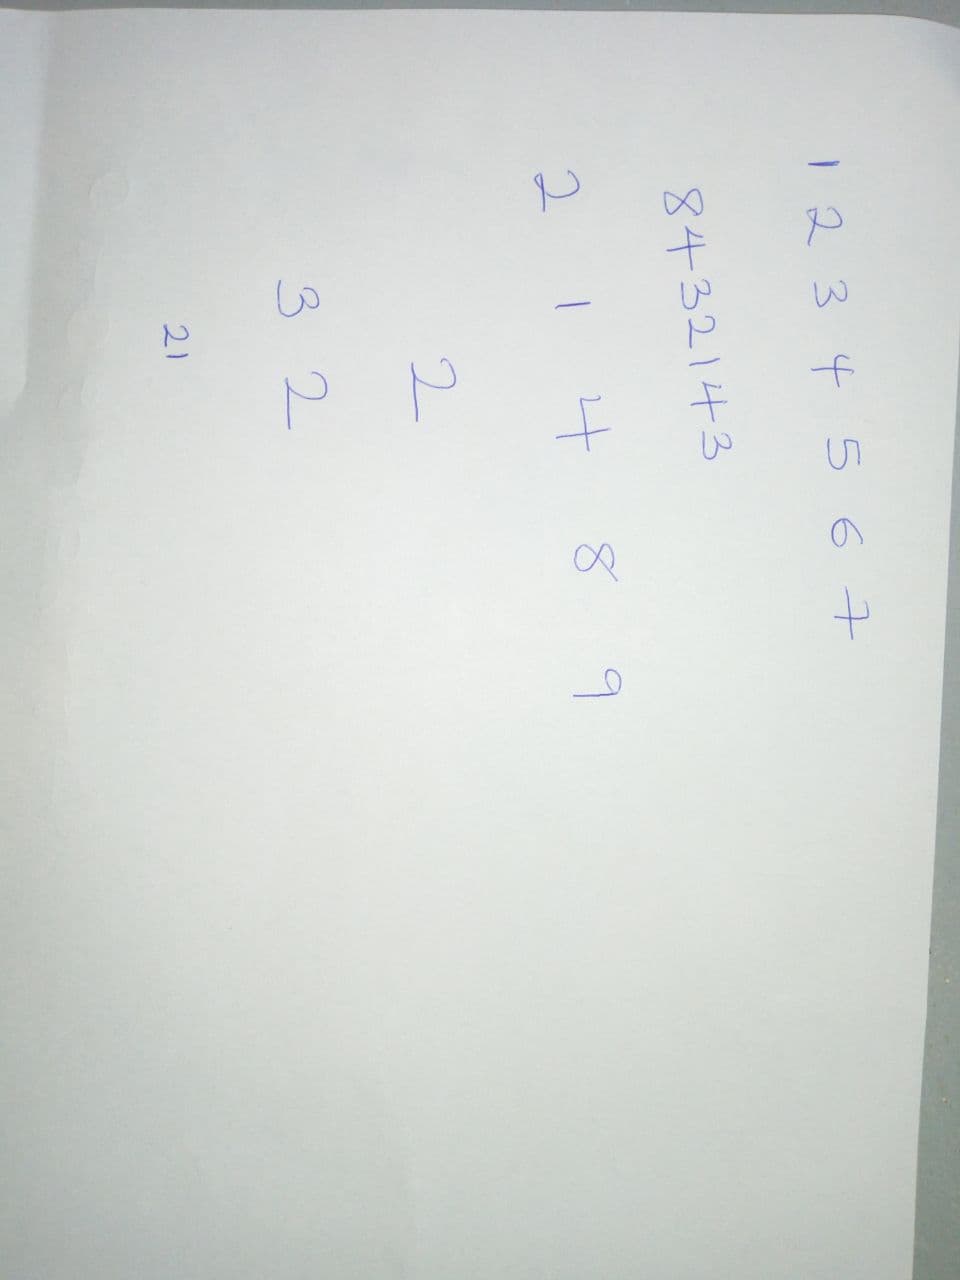 1 2 3 4 5 6 7
8432143
2 1 4 8 9
2
3 2
21